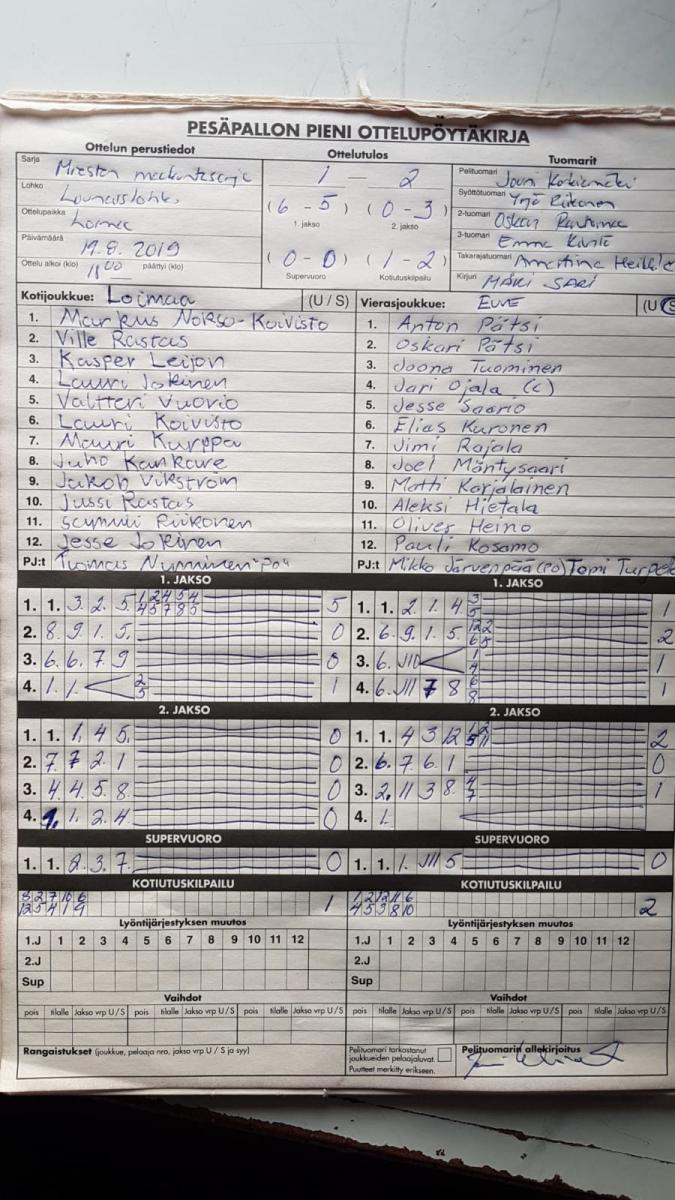 PESÄPALLON PIENI OTTELUPÖYTÄKIRJA
Ottelun perustiedot
Ottelutulos
Tuomarit
Sarja
Miesten
1 - 2
Pelituomari
Joni
Lohko
Lounaislohko
(6-5) (0-3)
1. jakso 2. jakso
Syöttötuomari Yrjö Riikonen
Ottelupaikka Loimaa
2-tuomari Oskari Rautamaa
Päivämäärä 19.8.2019
3-tuomari Emma
Ottelu alkoi (klo) 18 00 päättyi (klo)
(0-0) (1-2)
Supervuoro Kotiutuskilpailu
Takarajatuomari Annastiina
Kirjuri MÄKI SARI
Kotijoukkue: Loimaa (U / S)
1. Markus Nokso-Koivisto
2. Ville Rastas
3. Kasper Leijon
4. Lauri Jokinen
5. Valtteri Vuorio
6. Lauri Koivisto
7. Mauri Kurppa
8. Juho Kankare
9. Jakob Vikström
10. Jussi Rastas
11. Sammi Riikonen
12. Jesse Jokinen
PJ:t Tuomas Nymninen
Vierasjoukkue: EURE (U S
1. Anton Pätsi
2. Oskari Pätsi
3. Joona Tuominen
4. Jari Ojala (c)
5. Jesse Saario
6. Elias Kuronen
7. Jimi Rajala
8. Joel Mäntysaari
9. Matti Karjalainen
10. Aleksi Hietala
11. Oliver Heino
12. Pauli Kosamo
PJ:t Mikko Järvenpää (PO) Tomi
1. JAKSO
1. 1. 3. 2. 5. 1 2 4 5 4 5
4 5 7 8 5
2. 8. 9. 1. 5. 0
3. 6. 6. 7. 9 0
4. 1. 1. 2 1
5
1. JAKSO
1. 1. 2. 1. 4. 3 1
5
2. 6. 9. 1. 5. 12 2 2
6 5
3. 6. 1 1
4
4. 6. 7 8 6 1
8
2. JAKSO
1. 1. 1. 4 5. 0
2. 7. 7 2 1 0
3. 4. 4. 5 8. 0
4. 1. 1. 2. 4. 0
2. JAKSO
1. 1. 4 3 12 2
2. 6. 7. 6. 1 0
3. 2. 11 3 8. 4 1
7
4. 1.
SUPERVUORO
1. 1. 2. 3. 7. 0
SUPERVUORO
1. 1. 1. 5 0
KOTIUTUSKILPAILU
8 2 7 10 6 1
12 5 4 1 9
KOTIUTUSKILPAILU
1 2 12 11 6 2
4 5 3 8 10
Lyöntijärjestyksen muutos
1.J 1 2 3 4 5 6 7 8 9 10 11 12
2.J
Sup
Lyöntijärjestyksen muutos
1.J 1 2 3 4 5 6 7 8 9 10 11 12
2.J
Sup
Vaihdot
pois tilalle Jakso vrp U / S pois tilalle Jakso vrp U / S
Vaihdot
pois tilalle Jakso vrp U / S pois tilalle Jakso vrp U / S
Rangaistukset (joukkue, pelaaja nro, jakso vrp U / S ja syy)
Pelituomari tarkastanut
joukkueiden pelaajaluvat.
Puutteet merkitty erikseen.
Pelituomarin allekirjoitus